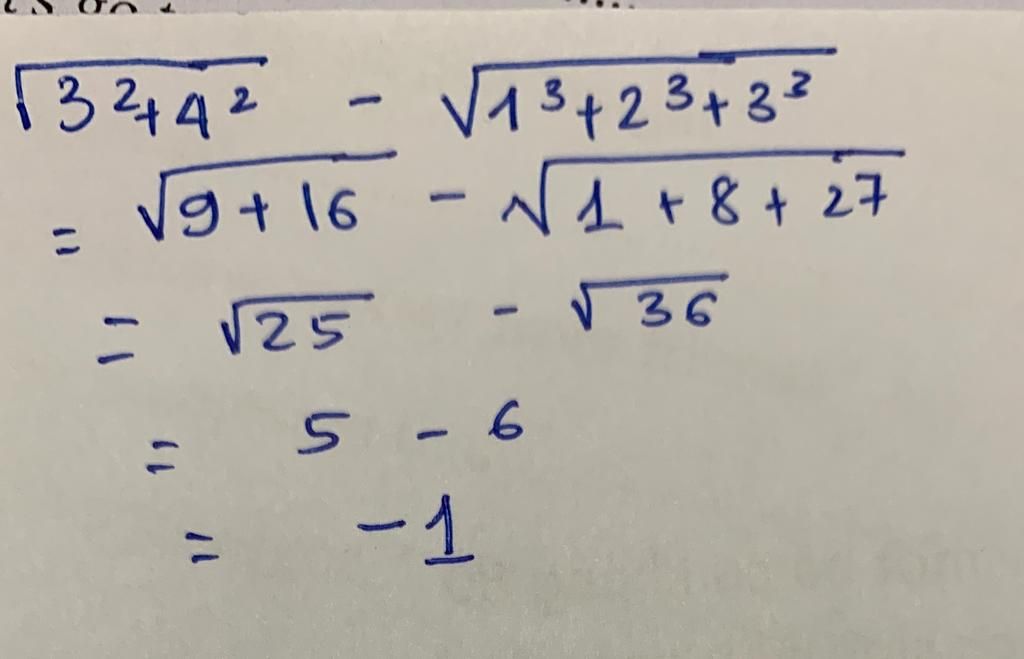 √3²+4² - √1³+2³+3³
= √9+16 - √1+8+27
= √25 - √36
= 5 - 6
= -1